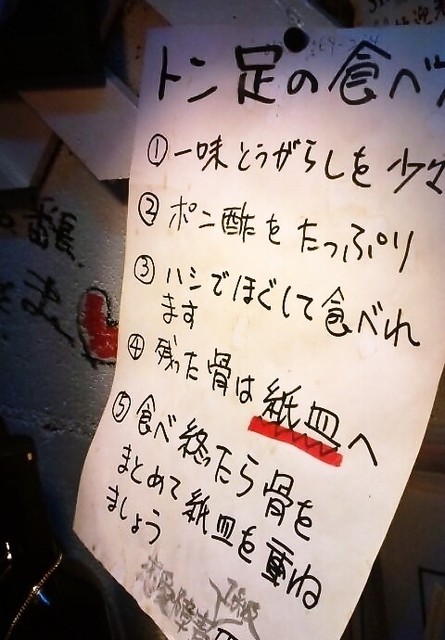 トン足の食べ
① 一味とうがらしを少々
② ポン酢をたっぷり
③ ハシでほぐして食べれ
ます
④ 残った骨は紙皿へ
⑤ 食べ終ったら骨を
まとめて紙皿を重ね
ましょう